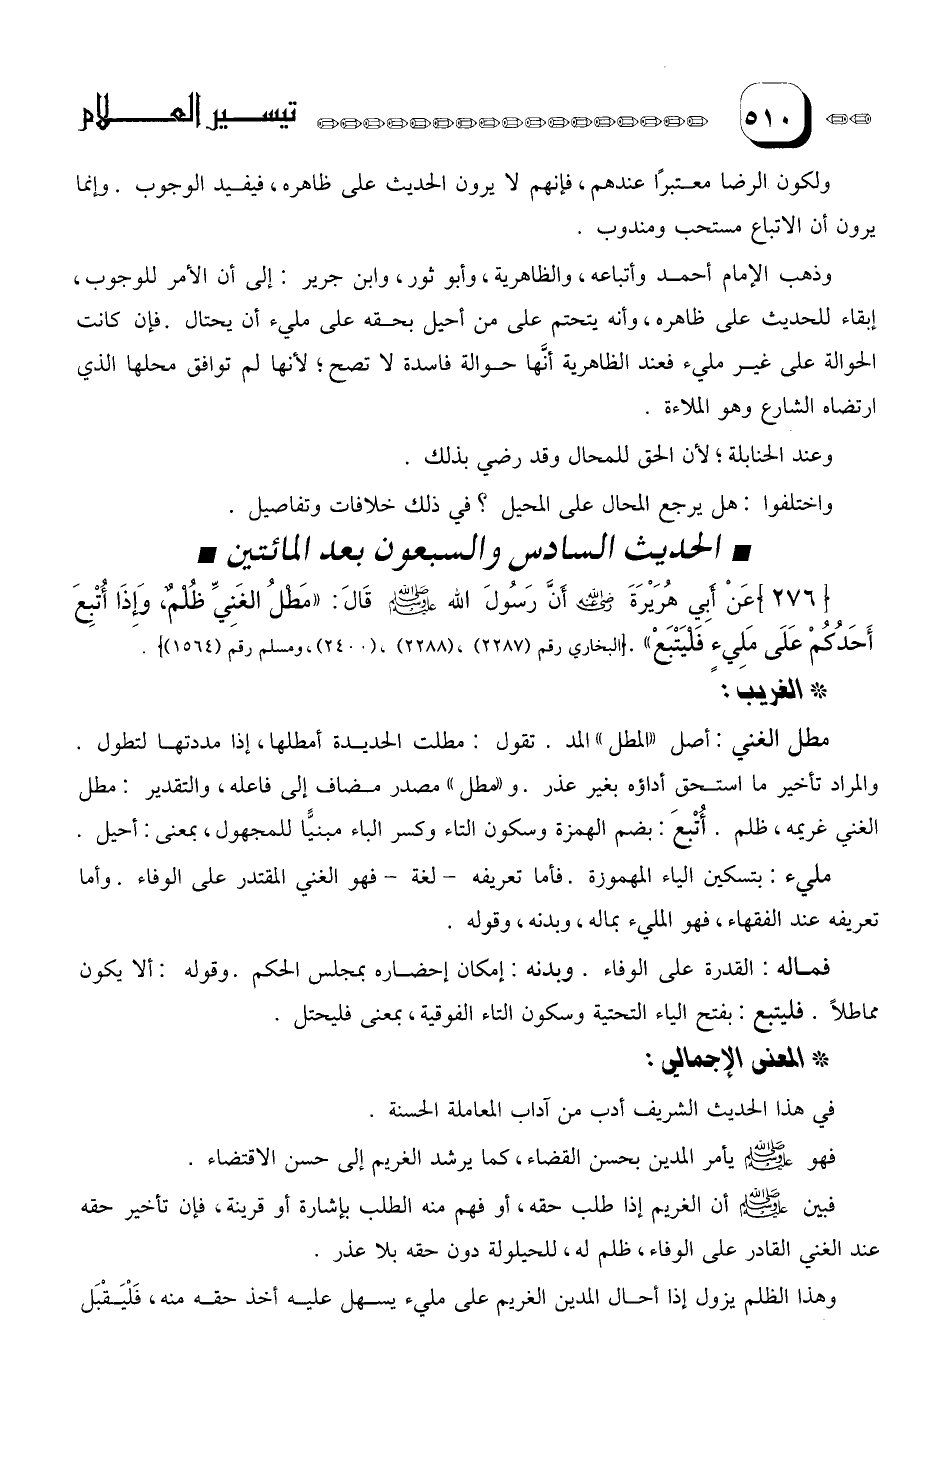 ٥١٠ تيسير العلام
ولكون الرضا معتبرًا عندهم، فإنهم لا يرون الحديث على ظاهره، فيفيد الوجوب . وإنما
يرون أن الاتباع مستحب ومندوب .
وذهب الإمام أحمد وأتباعه، والظاهرية، وأبو ثور، وابن جرير : إلى أن الأمر للوجوب،
إبقاء للحديث على ظاهره، وأنه يتحتم على من أحيل بحقه على مليء أن يحتال . فإن كانت
الحوالة على غير مليء فعند الظاهرية أنَّها حوالة فاسدة لا تصح؛ لأنها لم توافق محلها الذي
ارتضاه الشارع وهو الملاءة .
وعند الحنابلة؛ لأن الحق للمحال وقد رضي بذلك .
واختلفوا : هل يرجع المحال على المحيل ؟ في ذلك خلافات وتفاصيل .
■ الحديث السادس والسبعون بعد المائتين ■
{٢٧٦} عَنْ أَبِي هُرَيْرَةَ رضي الله عنه أَنَّ رَسُولَ الله ﷺ قَالَ: «مَطْلُ الغَنِيِّ ظُلْمٌ، وَإِذَا أُتْبِعَ
أَحَدُكُمْ عَلَى مَلِيءٍ فَلْيَتْبَعْ» . {البخاري رقم (٢٢٨٧) ، (٢٢٨٨) ، (٢٤٠٠)، ومسلم رقم (١٥٦٤)} .
* الغريب :
مطل الغني : أصل «المطل» المد . تقول : مطلت الحديدة أمطلها، إذا مددتها لتطول .
والمراد تأخير ما استحق أداؤه بغير عذر . و«مطل» مصدر مضاف إلى فاعله، والتقدير : مطل
الغني غريمه، ظلم . أُتْبِعَ : بضم الهمزة وسكون التاء وكسر الباء مبنيًّا للمجهول، بمعنى : أحيل .
مليء : بتسكين الياء المهموزة . فأما تعريفه - لغة - فهو الغني المقتدر على الوفاء . وأما
تعريفه عند الفقهاء، فهو المليء بماله، وبدنه، وقوله .
فماله : القدرة على الوفاء . وبدنه : إمكان إحضاره بمجلس الحكم . وقوله : ألا يكون
مماطلاً . فليتبع : بفتح الياء التحتية وسكون التاء الفوقية، بمعنى فليحتل .
* المعنى الإجمالي :
في هذا الحديث الشريف أدب من آداب المعاملة الحسنة .
فهو ﷺ يأمر المدين بحسن القضاء، كما يرشد الغريم إلى حسن الاقتضاء .
فبين ﷺ أن الغريم إذا طلب حقه، أو فهم منه الطلب بإشارة أو قرينة، فإن تأخير حقه
عند الغني القادر على الوفاء، ظلم له، للحيلولة دون حقه بلا عذر .
وهذا الظلم يزول إذا أحال المدين الغريم على مليء يسهل عليه أخذ حقه منه، فَلْيَقْبَل